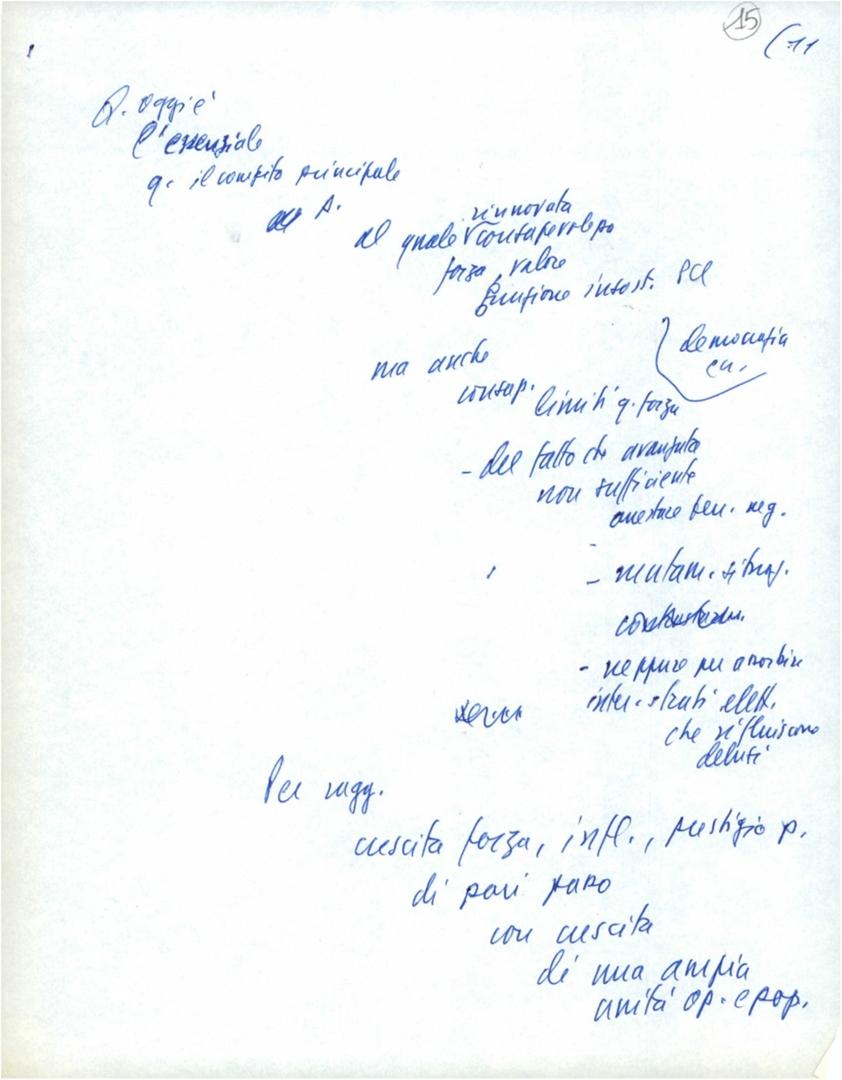 15
(11
Q. oggi è
l'essenziale
q. il compito principale
A.
rinnovata
al quale consapevolezza
forza, valore
funzione insost. PCI
democrazia
ma anche
consap. limiti q. forza
- del fatto che avanzata
non sufficiente
arrestare ten. neg.
- mutam. situaz.
- neppure per assorbire
inter. strati elett.
che rifluiscono
delusi
Per ragg.
crescita forza, infl., prestigio p.
di pari passo
con crescita
di una ampia
unità op. e pop.